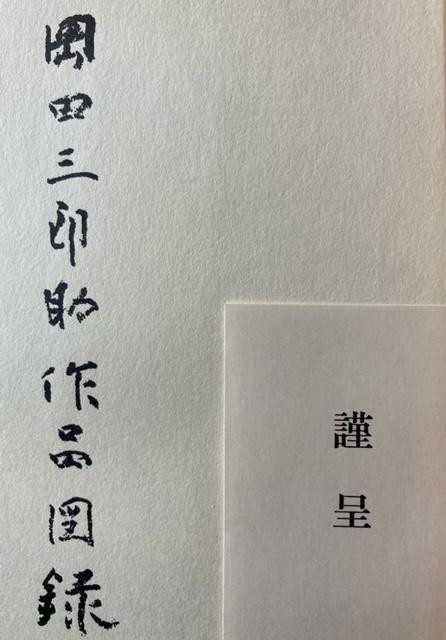 岡田三郎助作品図録
謹呈